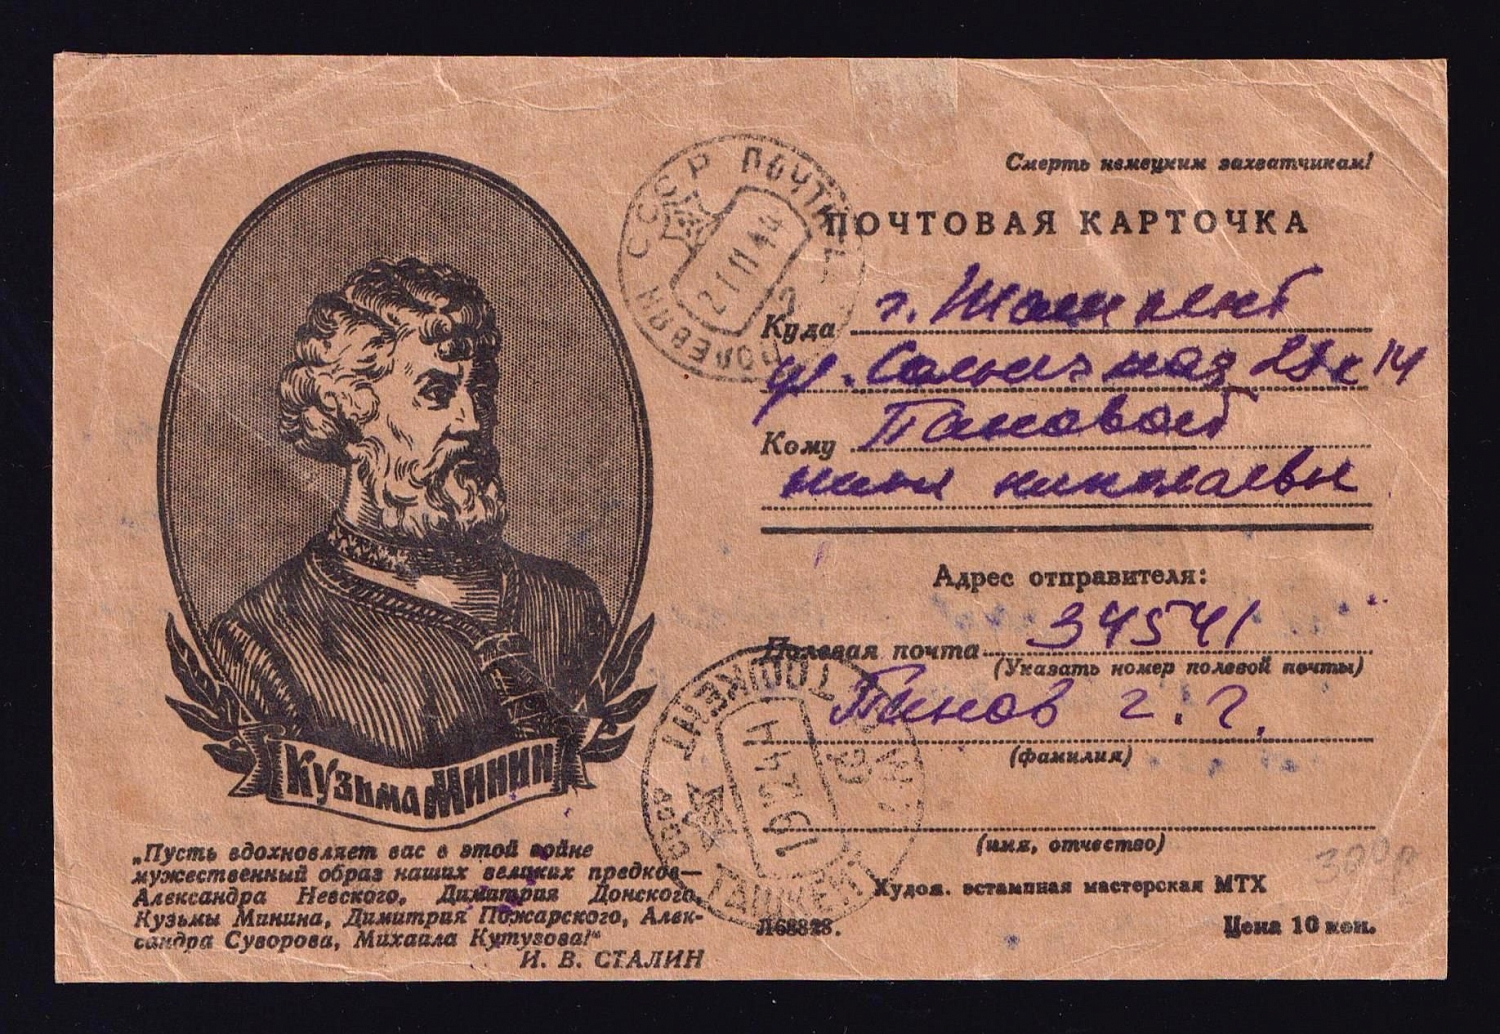 Смерть немецким захватчикам!
ПОЧТОВАЯ КАРТОЧКА
СССР ПОЧТА
21 11 44
ПОЛЕВАЯ
Куда г. Ташкент
ул.
Кому Пановой
Нине Николаевне
Адрес отправителя:
Полевая почта 34541
(Указать номер полевой почты)
Панов Г. Г.
(фамилия)
(имя, отчество)
ТОШКЕНТ
СССР
ТАШКЕНТ
Кузьма Минин
„Пусть вдохновляет вас в этой войне
мужественный образ наших великих предков—
Александра Невского, Димитрия Донского,
Кузьмы Минина, Димитрия Пожарского, Алек-
сандра Суворова, Михаила Кутузова!“
И. В. СТАЛИН
Худож. эстампная мастерская МТХ
Л68828.
Цена 10 коп.
300р